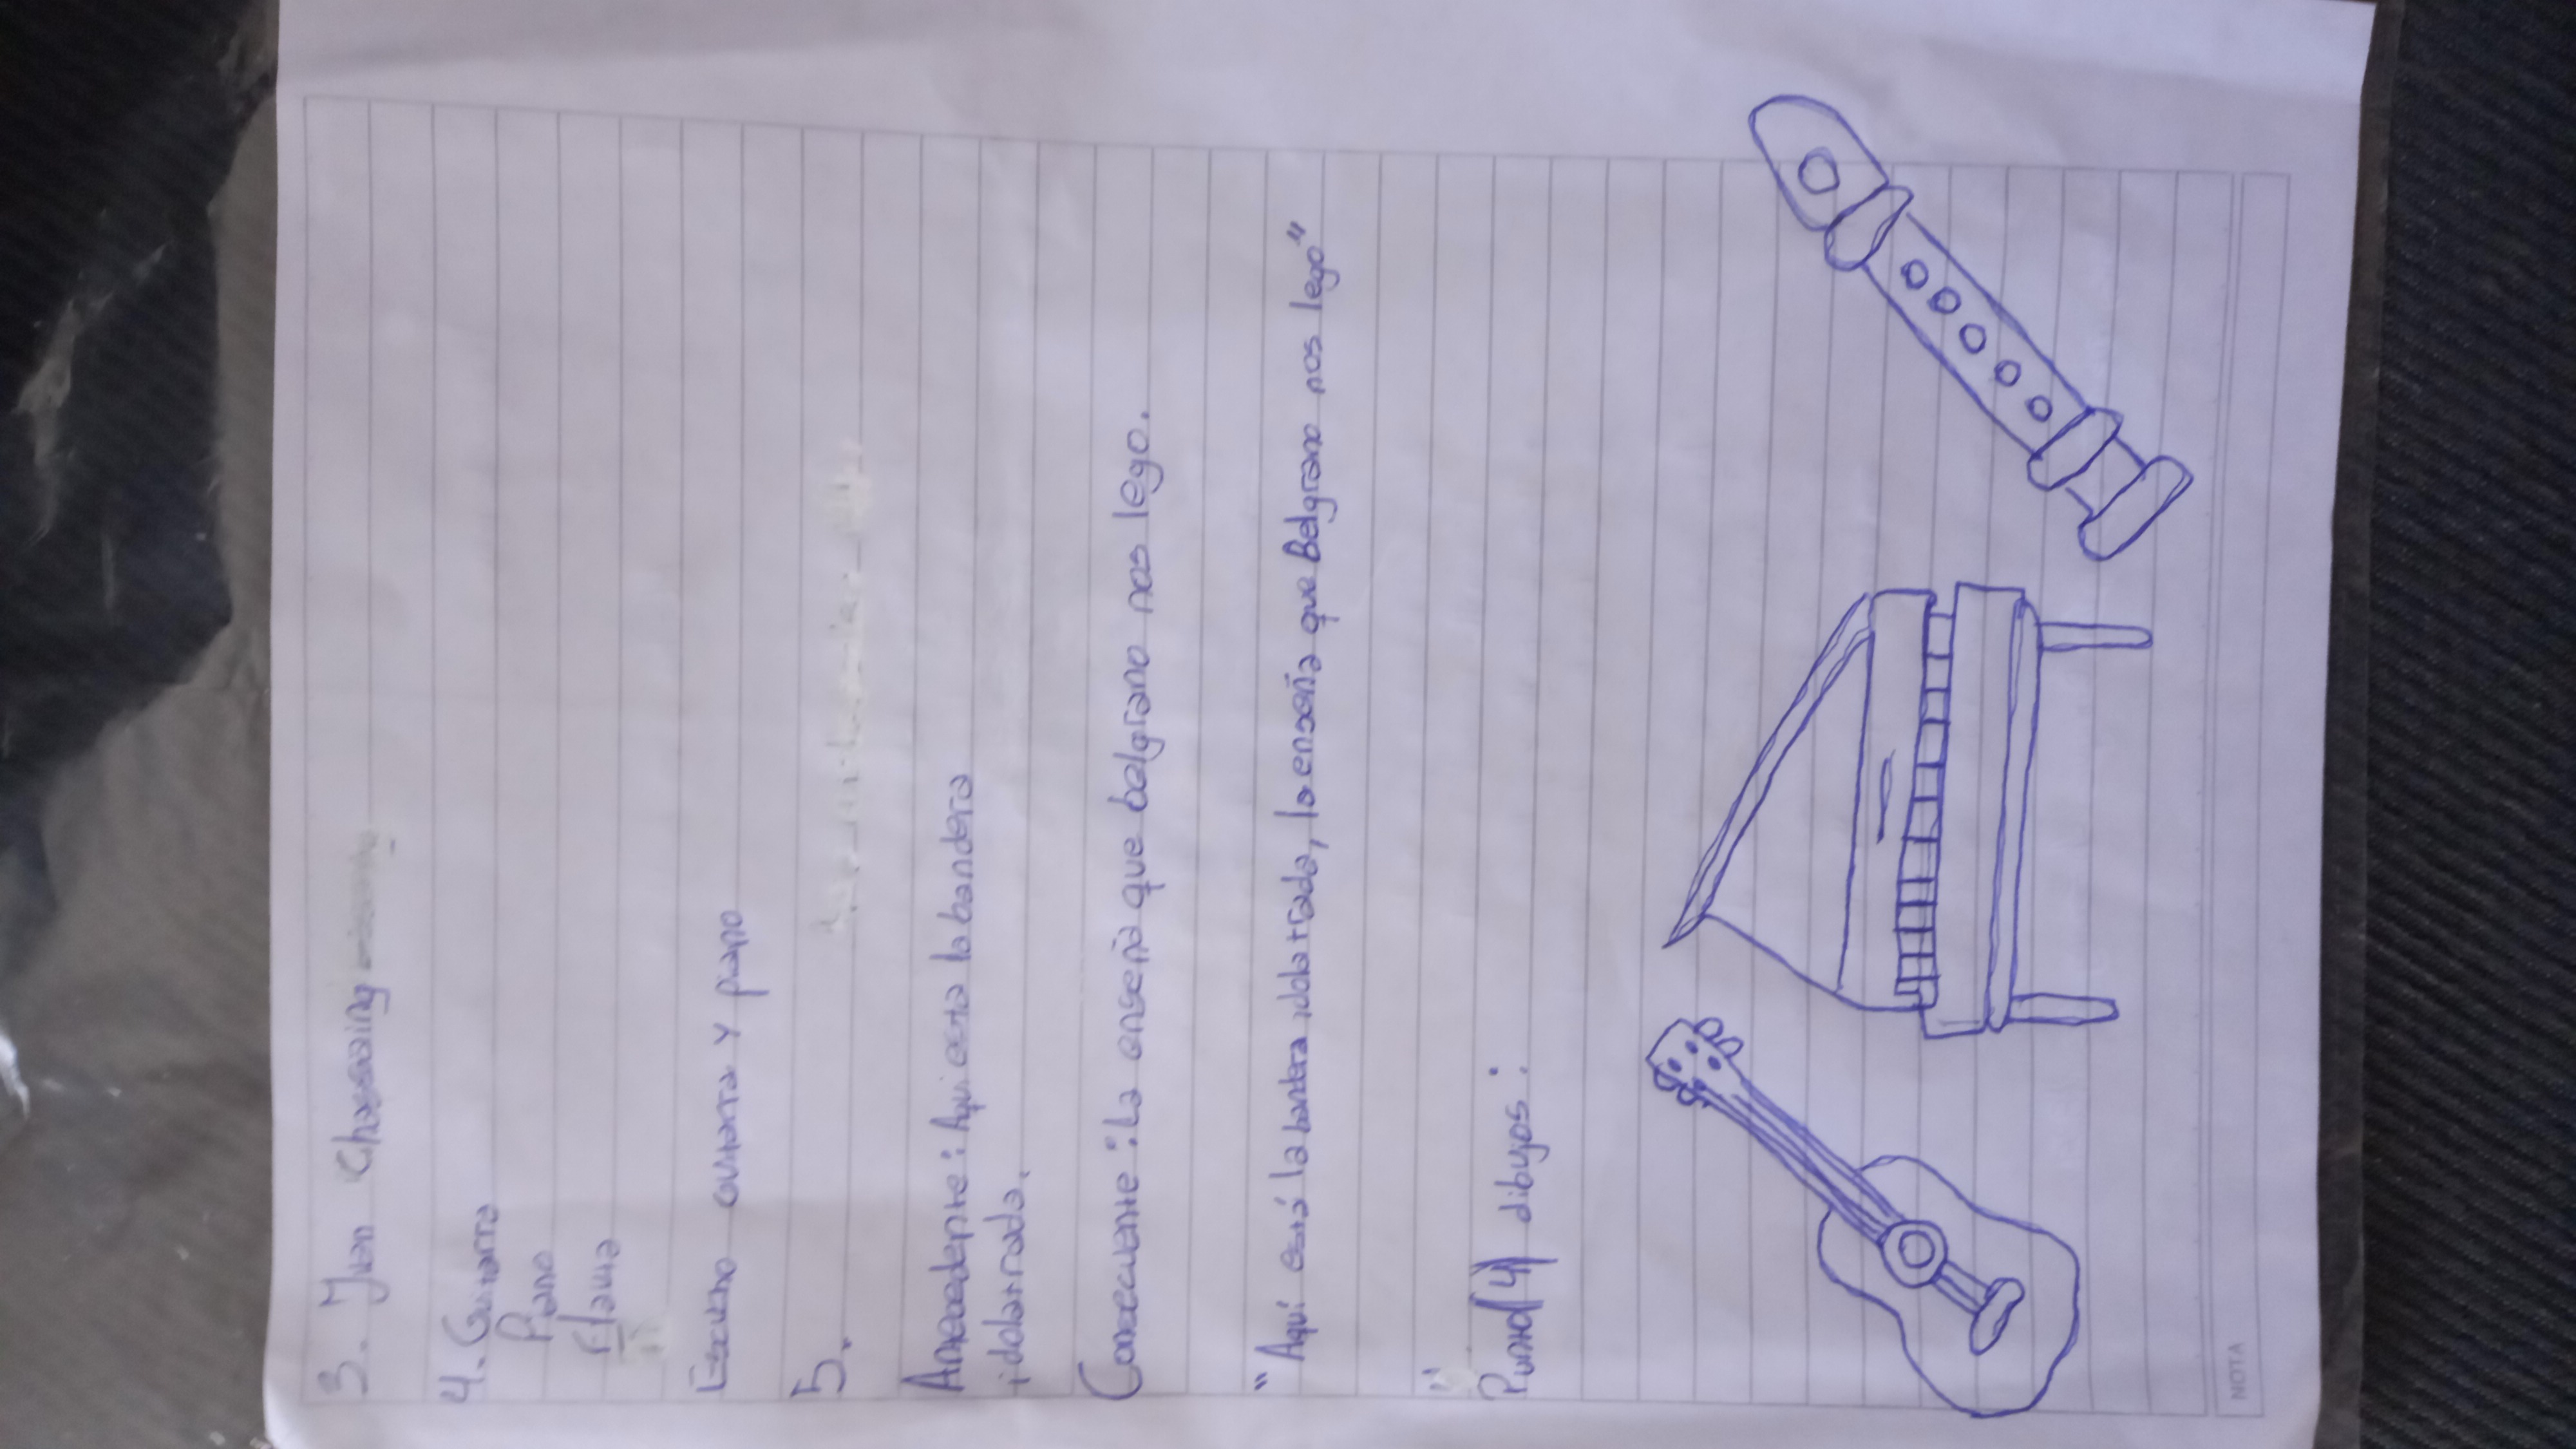 3. Juan Chassaing
4. Guitarra
Piano
Flauta
Escucho guitarra y piano
5.
Antecedente: Aqui esta la bandera
idolatrada.
Consecuente: La enseña que belgrano nos lego.
"Aquí está la bandera idolatrada, la enseña que Belgrano nos lego"
Punto(4) dibujos:
NOTA